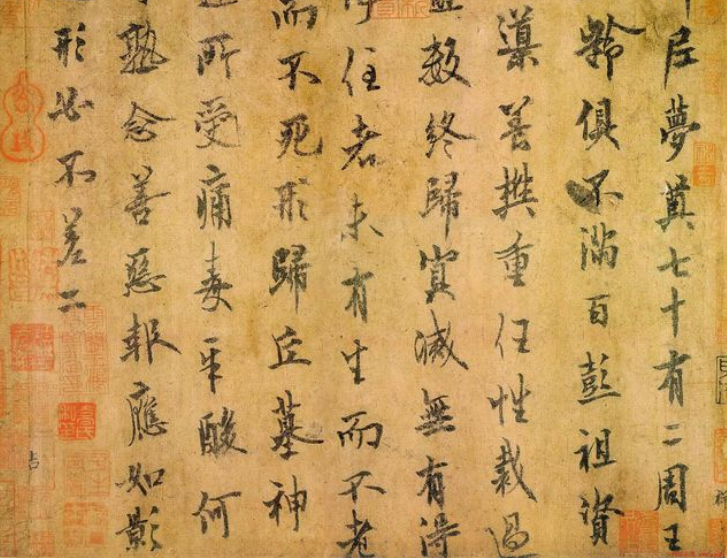 尼夢奠七十有二周王
齡俱不滿百彭祖資
善重任性裁過
數終歸冥滅無有得
住者未有生而不老
而不死形歸丘墓神
所受痛毒辛酸何
熟念善惡報應如影
形必不差二